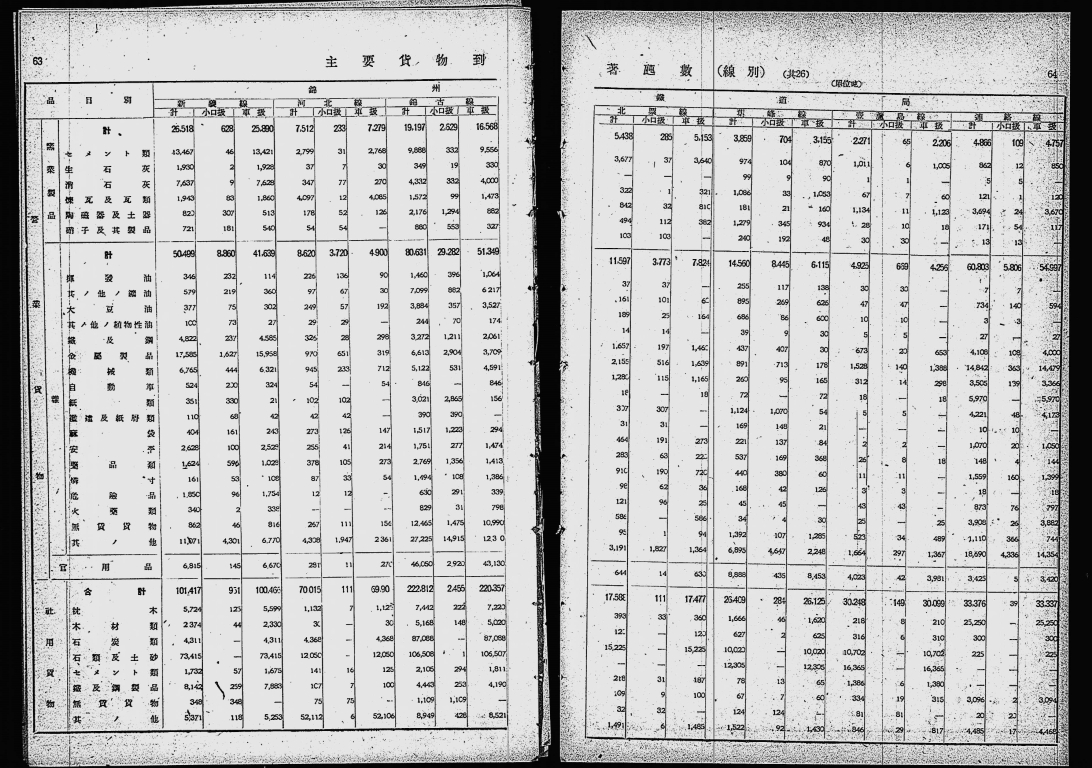 63
主要貨物到
錦州
品目別 新義線 河北線 錦古線
計 小口扱 車扱 計 小口扱 車扱 計 小口扱 車扱
計 26,518 628 25,890 7,512 233 7,279 19,197 2,629 16,568
セメント類 13,467 46 13,421 2,799 31 2,768 9,888 332 9,556
生石灰 1,930 2 1,928 37 7 30 349 19 330
消石灰 7,637 9 7,628 347 77 270 4,332 332 4,000
煉瓦及瓦類 1,943 83 1,860 4,097 12 4,085 1,572 99 1,473
陶磁器及土器 820 307 513 178 52 126 2,176 1,294 882
硝子及其製品 721 181 540 54 54 — 880 553 327
計 50,499 8,860 41,639 8,620 3,720 4,900 80,631 29,282 51,349
揮発油 346 232 114 226 136 90 1,460 396 1,064
其ノ他ノ鑛油 579 219 360 97 67 30 7,099 882 6,217
大豆油 377 75 302 249 57 192 3,884 357 3,527
其ノ他ノ植物性油 100 73 27 29 29 — 244 70 174
鐵及鋼 4,822 237 4,585 326 28 298 3,272 1,211 2,061
金屬製品 17,585 1,627 15,958 970 651 319 6,613 2,904 3,709
機械類 6,765 444 6,321 945 233 712 5,122 531 4,591
自動車 524 200 324 54 — 54 846 — 846
紙類 351 330 21 102 102 — 3,021 2,865 156
110 68 42 42 42 — 390 390 —
麻袋 404 161 243 273 126 147 1,517 1,223 294
安平 2,628 100 2,528 255 41 214 1,751 277 1,474
藥品類 1,624 596 1,028 378 105 273 2,769 1,356 1,413
燐寸 161 53 108 87 33 54 1,494 108 1,386
危險品 1,850 96 1,754 12 12 — 630 291 339
火藥類 340 2 338 — — — 829 31 798
無賃貨物 862 46 816 267 111 156 12,465 1,475 10,990
其ノ他 11,071 4,301 6,770 4,308 1,947 2,361 27,225 14,915
官用品 6,815 145 6,670 281 11 270 46,050 2,920 43,130
合計 101,417 951 100,466 70,015 111 222,812 2,455 220,357
社用貨物
枕木 5,724 125 5,599 1,132 7 1,125 7,442 222 7,220
木材類 2,374 44 2,330 30 30 5,168 148 5,020
石炭類 4,311 — 4,311 4,368 — 4,368 87,088 — 87,088
石類及土砂 73,415 — 73,415 12,050 — 12,050 106,508 1 106,507
セメント類 1,732 57 1,675 141 16 125 2,105 294 1,811
鐵及鋼製品 8,142 259 7,883 107 7 100 4,443 253 4,190
無賃貨物 348 348 — 75 75 — 1,109 1,109 —
其ノ他 5,371 118 5,253 52,112 6 52,106 8,949 428 8,521
著噸數(線別)(共26)
(單位噸)
64
鐵道局
北票線 葫蘆島線 連絡線
計 小口扱 車扱 計 小口扱 車扱 計 小口扱 車扱 計 小口扱 車扱
5,438 285 5,153 3,859 704 3,155 2,271 65 2,206 4,866 109 4,757
3,677 37 3,640 974 104 870 1,011 6 1,005 862 12 850
— — — 99 9 90 1 1 — 5 5 —
322 1 321 1,086 33 1,053 67 7 60 121 1 120
842 32 810 181 21 160 1,134 11 1,123 3,694 24 3,670
494 112 382 1,279 345 934 28 10 18 171 54 117
103 103 — 240 192 48 30 30 — 13 13 —
11,597 3,773 7,824 14,560 8,445 6,115 4,925 669 4,256 60,803 5,806 54,997
37 37 — 255 117 138 30 30 — 7 7 —
161 101 60 895 269 626 47 47 — 734 140 594
189 25 164 686 86 600 10 10 — 3 3 —
14 14 — 39 9 30 5 5 — 27 — 27
1,657 197 1,460 437 407 30 673 20 653 4,108 108 4,000
2,155 516 1,639 891 713 178 1,528 140 1,388 14,842 363 14,479
1,280 115 1,165 260 95 165 312 14 298 3,505 139 3,366
18 — 18 72 — 72 18 — 18 5,970 — 5,970
307 307 — 1,124 1,070 54 5 5 — 4,221 48 4,173
31 31 — 169 148 21 — — — 10 10 —
464 191 273 221 137 84 2 2 — 1,070 20 1,050
283 63 220 537 169 368 26 8 18 148 4 144
910 190 720 440 380 60 11 11 — 1,559 160 1,399
98 62 36 168 42 126 3 3 — 18 — 18
121 96 25 45 45 — 43 43 — 873 76 797
586 — 586 34 4 30 25 — 25 3,908 26 3,882
95 1 94 1,392 107 1,285 523 34 489 1,110 366 744
3,191 1,827 1,364 6,895 4,647 2,248 1,664 297 1,367 18,690 4,336 14,354
644 14 630 8,888 435 8,453 4,023 42 3,981 3,425 5 3,420
17,588 111 17,477 26,409 284 26,125 30,248 149 30,099 33,376 39 33,337
393 33 360 1,666 46 1,620 218 8 210 25,250 — 25,250
120 — 120 627 2 625 316 6 310 300 — 300
15,225 — 15,225 10,020 — 10,020 10,702 — 10,702 225 — 225
— — — 12,305 — 12,305 16,365 — 16,365
218 31 187 78 13 65 1,386 6 1,380 — — —
109 9 100 67 7 60 334 19 315 3,096 2 3,094
32 32 — 124 124 — 81 81 — 20 20 —
1,491 6 1,485 1,522 92 1,430 846 29 817 4,485 17 4,468